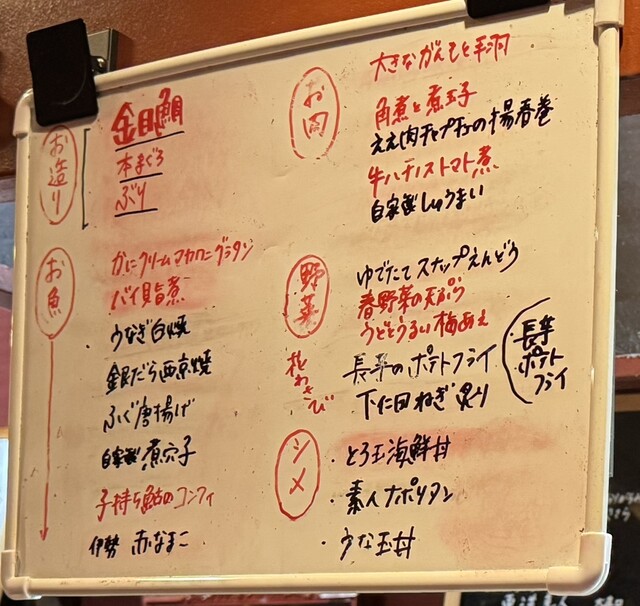 お造り
金目鯛
本まぐろ
ぶり
お魚
かにクリームマカロニグラタン
バイ貝旨煮
うなぎ白焼
銀だら西京焼
ふぐ唐揚げ
自家製煮穴子
子持ち鮎のコンフィ
伊勢 赤なまこ
お肉
大きながんもと手羽
角煮と煮玉子
ええ肉チャプチェの揚春巻
牛ハチノストマト煮
自家製しゅうまい
野菜
ゆでたてスナップえんどう
春野菜の天ぷら
うどとうるい梅あえ
花わさび
長芋のポテトフライ
下仁田ねぎ炙り
長芋
ポテト
フライ
シメ
・とろ玉海鮮丼
・素人ナポリタン
・うな玉丼